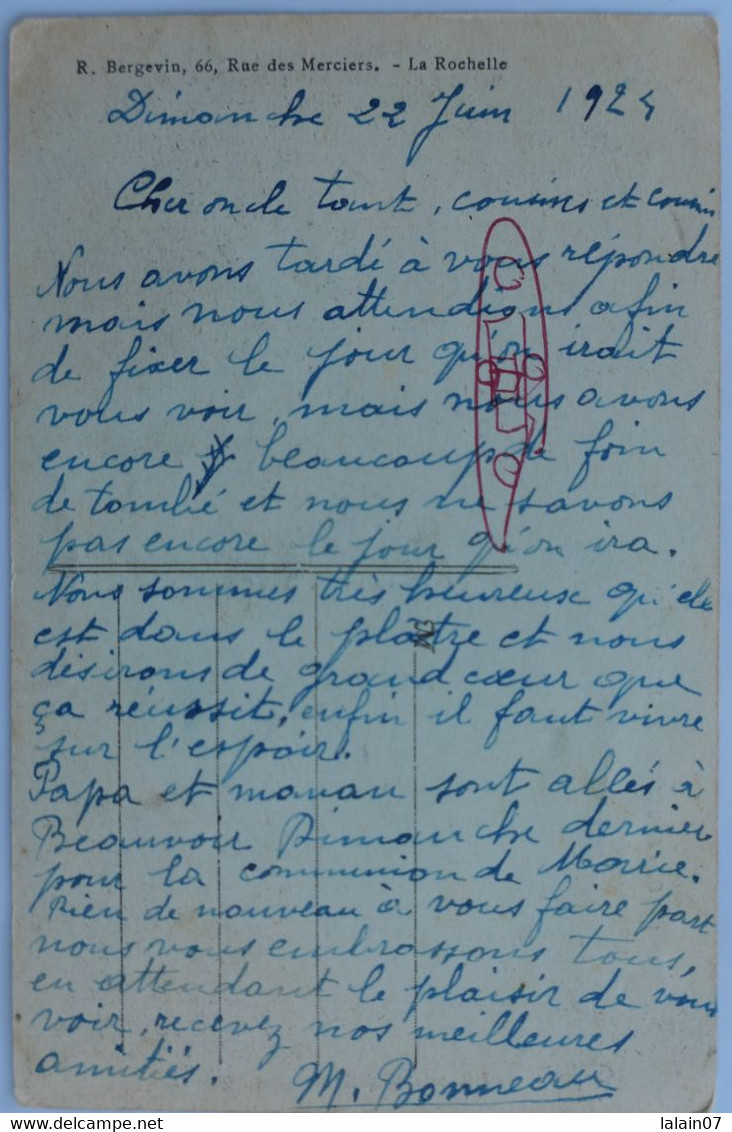 R. Bergevin, 66, Rue des Merciers. - La Rochelle
Dimanche 22 Juin 1924
Cher oncle tant, cousins et cousin
Nous avons tardé à vous répondre
mais nous attendions afin
de fixer le jour qu'on irait
vous voir, mais nous avons
encore beaucoup de foin
de tombé et nous ne savons
pas encore le jour qu'on ira.
Nous sommes très heureux qu'elle
est dans le plâtre et nous
désirons de grand cœur que
ça réussit, enfin il faut vivre
sur l'espoir.
Papa et maman sont allés à
Beauvoir Dimanche dernier
pour la communion de Marie.
Rien de nouveau à vous faire part
nous vous embrassons tous,
en attendant le plaisir de vous
voir, recevez nos meilleures
amitiés. M. Bonneau
lalain07